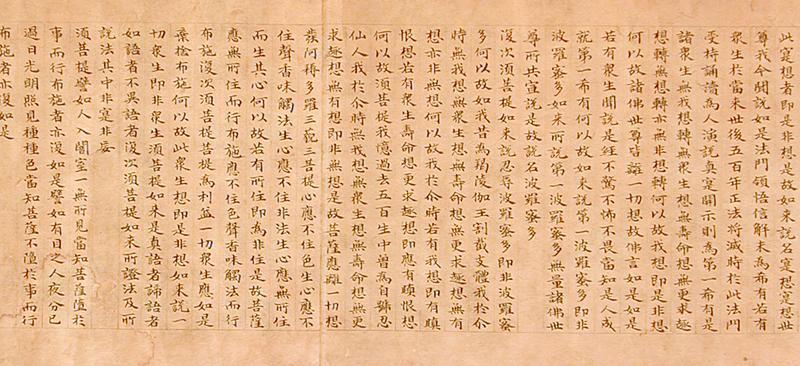 此寔想者即是非想故如来説名寔想寔想世
尊我今聞説如是法門領悟信解未為希有若有
衆生於當来世後五百年正法將滅時於此法門
受持誦讀為人演說真寔開示則為第一希有是
諸衆生無我想轉無衆生想無壽命想無更求趣
想轉無想轉亦無非想轉何以故我想即是非想
何以故諸佛世尊皆離一切想故佛言如是如是
若有衆聞說是經不驚不怖不畏當知是人成
就第一希有何以故如来說第一波羅蜜多即非
波羅蜜多如来所說第一波羅蜜多無量諸佛世
尊所共宣說是故說名波羅蜜多
復次須菩提如来說忍辱波羅蜜多即非波羅蜜
多何以故如我昔為羯陵伽王割截支體我於尒
時無我想無衆生想無壽命想無更求趣想無有
想亦非無想何以故我於尒時若有我想即有瞋
恨想若有衆生壽命想更求趣想即應有瞋恨想
何以故須菩提我憶過去五百生中曾為自號忍
仙人我於尒時無我想無衆生想無壽命想無更
求趣想無有想即非無想是故菩薩應離一切想
發阿耨多羅三藐三菩提心應不住色生心應不
住聲香味觸法生心應不住非法生心應無所住
而生其心何以故若有所住即為非住是故菩薩
應無所住而行布施應不住色聲香味觸法而行
布施復次須菩提菩提為利益一切衆生應如是
棄捨布施何以故此衆生想即是非想如来說一
切衆生即非衆生須菩提如来是真語者諦語者
如語者不異語者復次須菩提如来所證法及所
說法其中非寔非妄
須菩提譬如人入闇室一無所見當知菩薩墮於
事而行布施者亦復如是譬如有目之人夜分已
過日光明照見種種色當知菩薩不墮於事而行
布施者亦復如是